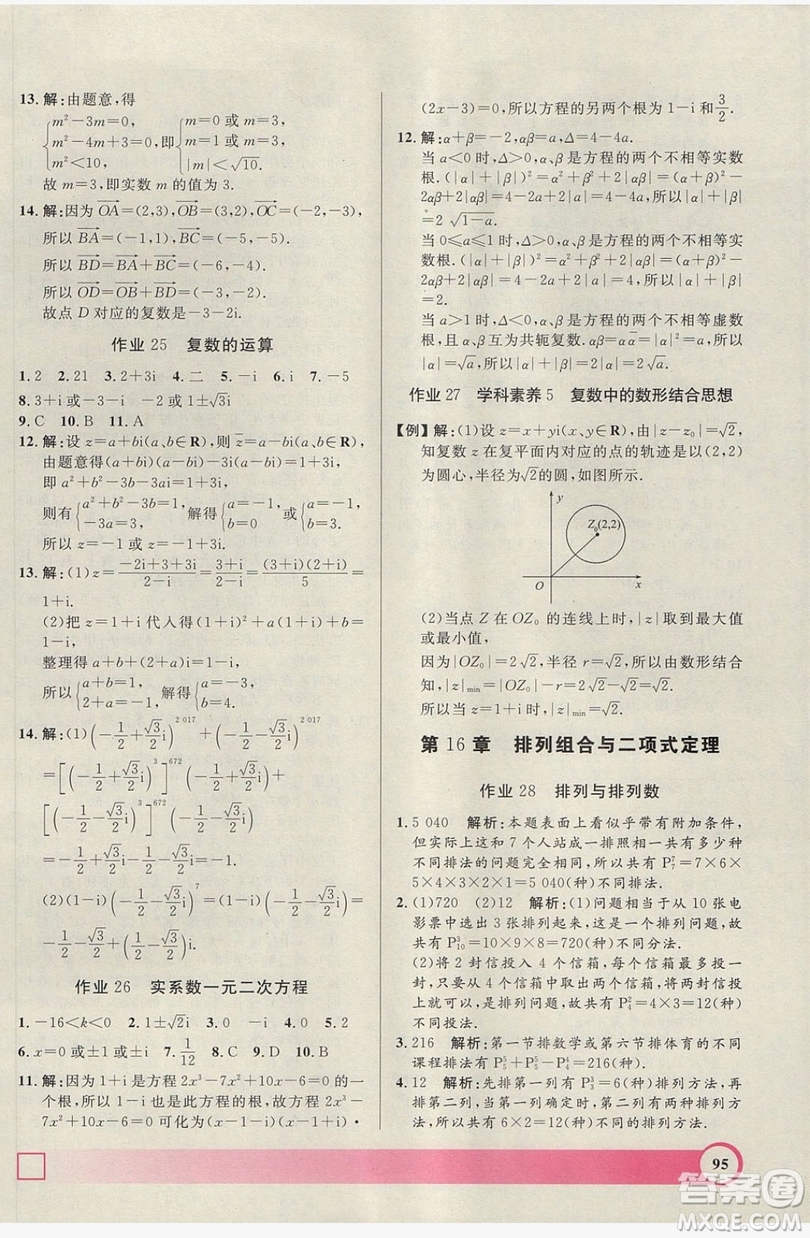 13. 解:由题意,得
{m²-3m=0, m²-4m+3=0, m²<10, 即 {m=0 或 m=3, m=1 或 m=3, |m|<√10.
故 m=3,即实数 m 的值为 3.
14. 解:因为OA→=(2,3),OB→=(3,2),OC→=(-2,-3),
所以BA→=(-1,1),BC→=(-5,-5).
所以BD→=BA→+BC→=(-6,-4).
所以OD→=OB→+BD→=(-3,-2).
故点 D 对应的复数是-3-2i.
作业 25 复数的运算
1. 2 2. 21 3. 2+3i 4. 二 5. -i 6. i 7. -5
8. 3+i或-3-i
9. C 10. B 11. A
12. 解:设 z=a+bi(a,b∈R),则z̄=a-bi(a,b∈R),
由题意得(a+bi)(a-bi)-3i(a+bi)=1+3i,
即 a²+b²+3b-3ai=1+3i.
则有{a²+b²+3b=1, -3a=3, 解得{a=-1, b=0 或{a=-1, b=-3.
所以 z=-1或 z=-1-3i.
13. 解:(1)z=(-2i+3+3i)/(2-i)=(3+i)/(2-i)=(3+i)(2+i)/5=
1+i.
(2)把 z=1+i 代入得(1+i)²+a(1+i)+b=
1-i,
整理得 a+b+(2+a)i=1-i,
所以{a+b=1, 2+a=-1, 解得{a=-3, b=4.
14. 解:(1)(-1/2+√3/2 i)^2 017+(-1/2-√3/2 i)^2 017
=[(-1/2+√3/2 i)³]^672(-1/2+√3/2 i)+
[(-1/2-√3/2 i)³]^672(-1/2-√3/2 i)
=-1/2+√3/2 i-1/2-√3/2 i=-1.
(2)(1-i)(-1/2+√3/2 i)^7=(1-i)(-1/2+√3/2 i)=
-1/2+√3/2+(√3/2+1/2)i.
作业 26 实系数一元二次方程
1. -16<k<0 2. 1±√2i 3. 0 4. 0 5. 2
6. x=0或±1或±2i 7. 1/12 8. C 9. D 10. B
11. 解:因为 1+i 是方程 2x³-7x²+10x-6=0 的一
个根,所以 1-i 也是此方程的根,故方程 2x³-
7x²+10x-6=0 可化为(x-1-i)(x-1+i)·
(2x-3)=0,所以方程的另两个根为 1-i 和 3/2.
12. 解:α+β=-2,αβ=a,Δ=4-4a.
当 a<0 时,Δ>0,α,β 是方程的两个不相等实数
根.(|α|+|β|)²=|α|²+|β|²+2|αβ|=(α+β)²-
2αβ+2|αβ|=4-2a+2|a|=4-4a,所以|α|+|β|=
2√1-a.
当 0≤a≤1 时,Δ≥0,α,β 是方程的两个不相等实
数根.(|α|+|β|)²=|α|²+|β|²+2|αβ|=(α+β)²-
2αβ+2|αβ|=4-2a+2|a|=4,所以|α|+|β|
=2.
当 a>1 时,Δ<0,α,β 是方程的两个不相等虚数
根,且 α,β 互为共轭复数.因为 a=αβ=αᾱ=|α|²,
所以|α|+|β|=2|α|=2√a.
作业 27 学科素养 5 复数中的数形结合思想
【例】解:(1)设 z=x+yi(x,y∈R),由|z-z₀|=√2,
知复数 z 在复平面内对应的点的轨迹是以(2,2)
为圆心,半径为√2的圆,如图所示.
y
Z₀(2,2)
O x
(2)当点 Z 在 OZ₀ 的连线上时,|z|取到最大值
或最小值,
因为|OZ₀|=2√2,半径 r=√2,所以由数形结合
知,|z|min=|OZ₀|-√2=√2.
所以当 z=1+i 时,|z|min=√2.
第 16 章 排列组合与二项式定理
作业 28 排列与排列数
1. 5 040 解析:本题表面上看似乎带有附加条件,
但实际上这和 7 个人站成一排照相共有多少种
不同排法的问题完全相同,所以共有 P₇⁷=7×6×
5×4×3×2×1=5 040(种)不同排法.
2. (1)720 (2)12 解析:(1)问题相当于从 10 张电
影票中选出 3 张排列起来,这是一个排列问题,故
共有 P₁₀³=10×9×8=720(种)不同分法.
(2)将两封信投入 4 个信箱,可以将两封信按顺
序排列,从 4 个信箱中取出两个信箱与两封信对
应,就得到一种投法,所以共有 P₄²=4×3=12(种)
不同投法.
3. 216 解析:第一节排数学或第六节排体育的不同
课程排法共有 P₅⁵+P₄¹·P₄⁴=216(种).
4. 12 解析:先排第一列有 P₃³=6(种)排列方法,再
排第二列,当第一列确定时,第二列有两种排列方
法,所以共有 6×2=12(种)排列方法.
95
答案圈
MXQE.COM